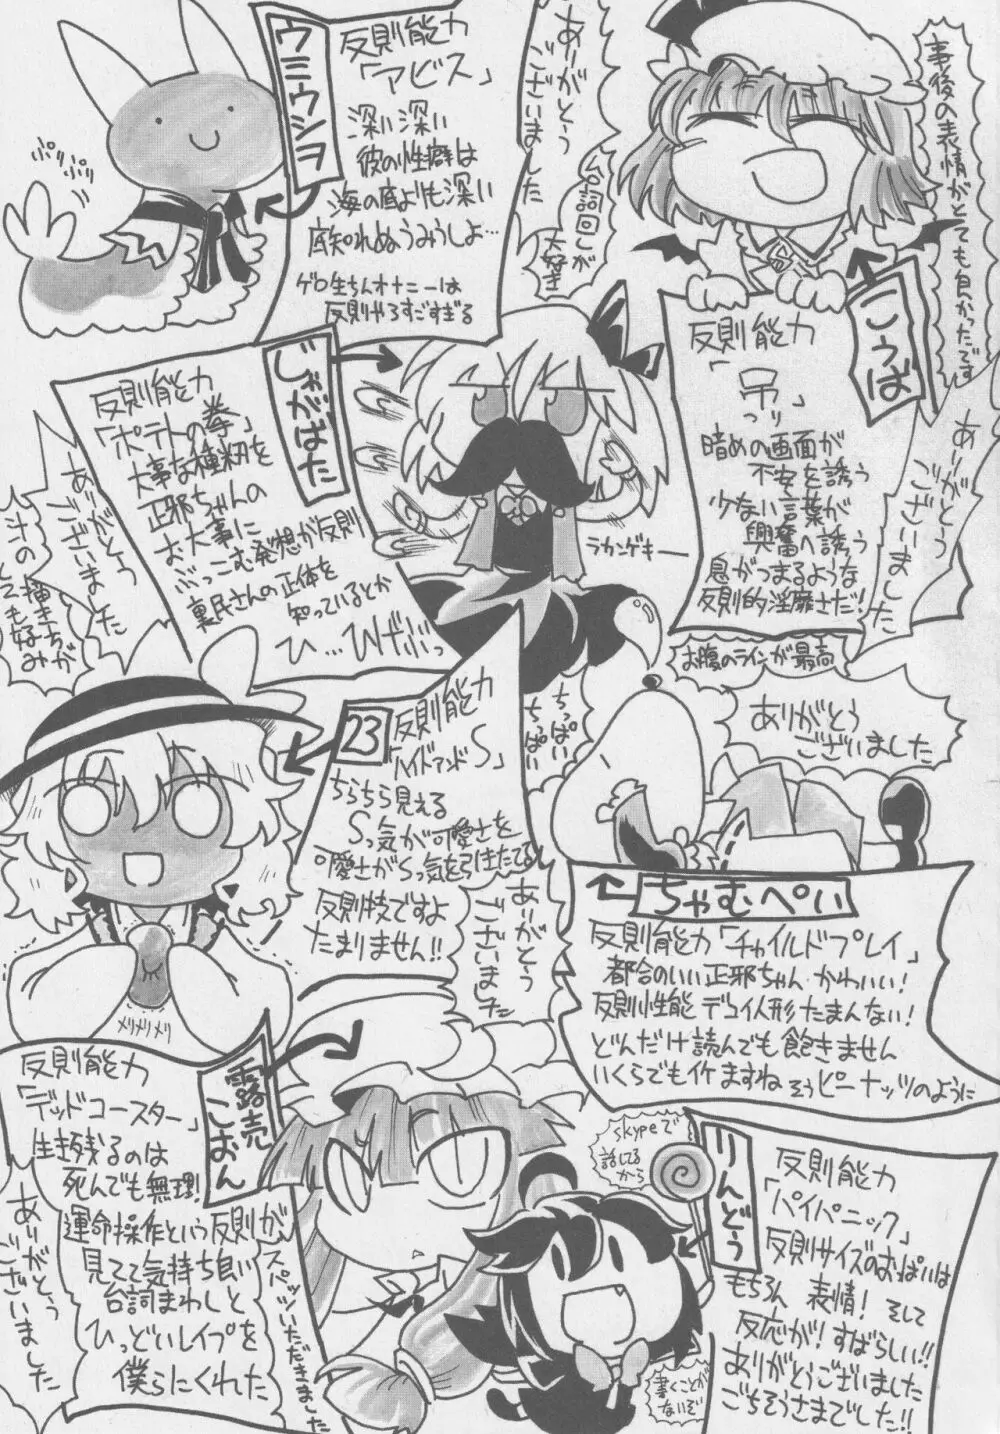 事後の表情がとても良かったです
ありがとう
ございました
台詞回しが
大好き
こうば
反則能力
「吊り」
暗めの画面が
不安を誘う
少ない言葉が
興奮へ誘う
息がつまるような
反則的淫靡さだ!
お腹のラインが最高
ありがとう
ございました
ウミウシヲ
反則能力
「アビス」
深い深い
彼の性癖は
海の底よりも深い
底知れぬうみうしよ…
ゲロ生ちんオナニーは
反則やろすごすぎる
ぷりぷり
じゃがばた
反則能力
「ポテトの拳」
大事な種籾を
正邪ちゃんの
お大事に
ぶっこむ発想が反則
裏民さんの正体を
知っているとか
ひ…ひげぶぅ
ラカンゲキー
ありがとう
ございました
汁の描き方が
とても好み
23
反則能力
「ハイドアンドS」
ちらちら見える
Sっ気が可愛さを
可愛さがSっ気を引きたてる
反則技ですよ
たまりません!!
ちっぱい
ちっぱい
ありがとう
ございました
メリメリメリ
ありがとう
ございました
ちゃむぺい
反則能力「チャイルドプレイ」
都合のいい正邪ちゃん かわいい!
反則性能デコイ人形たまんない!
どんだけ読んでも飽きません
いくらでもイケますね そうピーナッツのように
露売こおん
反則能力
「デッドコースター」
生き残るのは
死んでも無理!
運命操作という反則が
見てて気持ち良い
台詞まわしと
ひっどいレイプを
僕らにくれた
スパッツいただきました
ありがとう
ございました
りんどう
反則能力
「パイパニック」
反則サイズのおっぱいは
もちろん 表情! そして
反応が! すばらしい!!
ありがとうございました
ごちそうさまでした!!
skypeで
話してる
から
書くことが
ないぞ